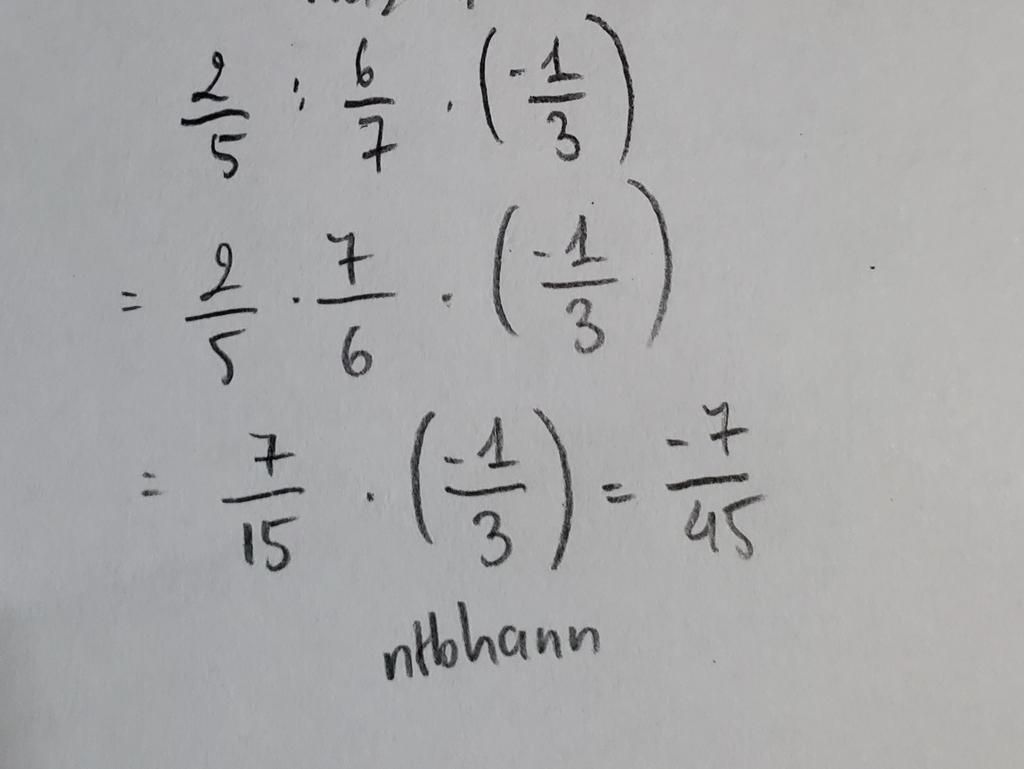 2/5 : 6/7 . (-1/3)
= 2/5 . 7/6 . (-1/3)
= 7/15 . (-1/3) = -7/45
ntbhann